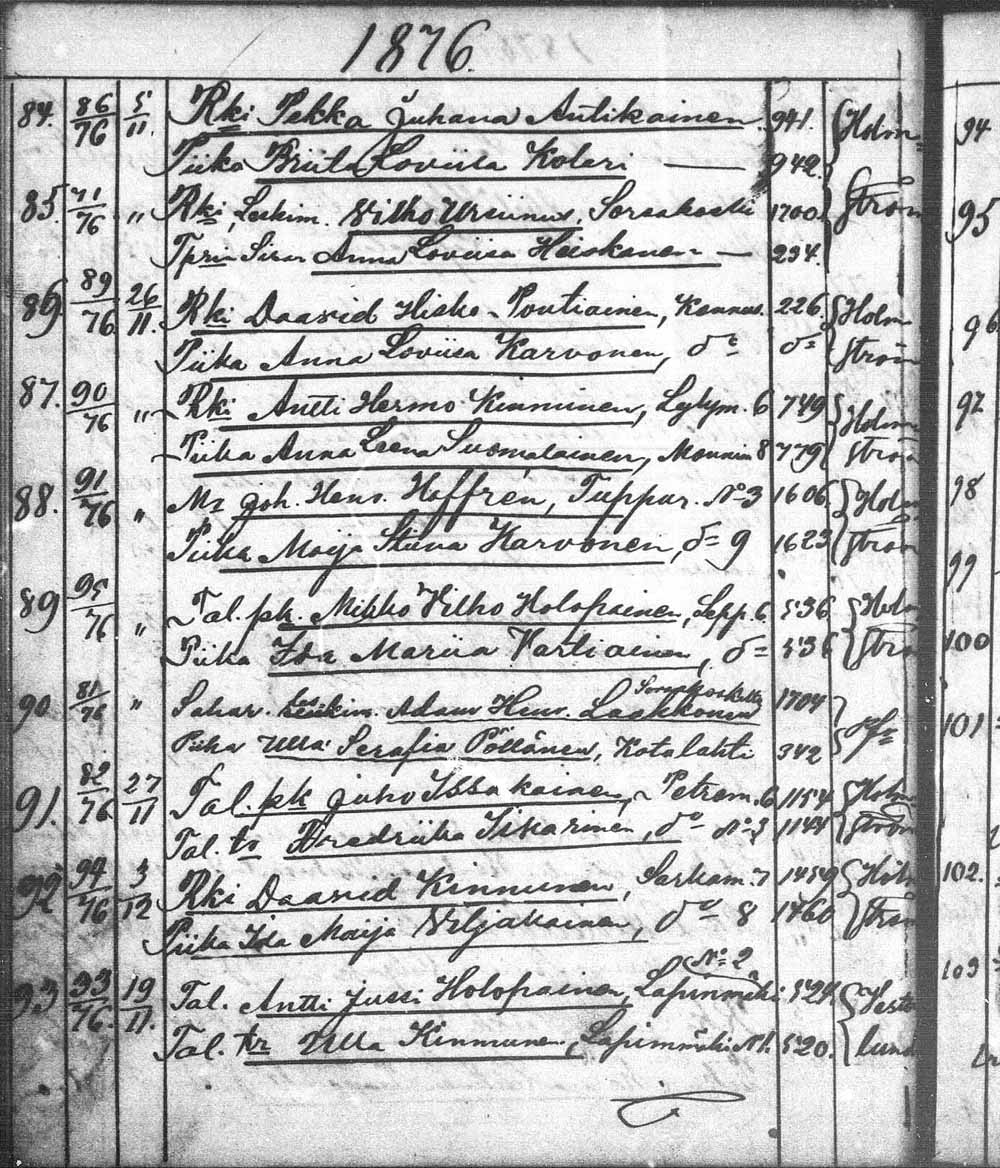 1876.
84. 86/76 5/11 Rki Pekka Juhana Antikainen 941. Holm=
Piika Briita Loviisa Koleri — 942. ström
85. 71/76 " Rki, Leskim. Vilho Ursinus, Sorsakoski 1700.
Tprin Anna Loviisa Heiskanen — 234.
86. 89/76 26/11 Rki Daavid Hisko Pontiainen, Kannus. 226. Holm
Piika Anna Loviisa Karvonen, do do ström
87. 90/76 " Rki Antti Hermo Kinnunen, Lylym. 6 749 Holm
Piika Anna Leena Suomalainen, Monnin 8 779 ström
88. 91/76 " Joh. Henr. Hoffrén, Tuppur. No 3 1606 Holm
Piika Maija Stiina Karvonen, do 9 1623 ström
89 95/76 " Tal. pk. Mikko Vilho Holopainen, Lepp. 6 536 Holm
Piika Ida Mariia Vartiainen, do 536 strö
90 81/76 " Leskim. Adam Henr. Laakkonen Sorsakoskelta 1704
Piika Ulla Serafia Pöllänen, Kotalahti 342
91. 82/76 27/11 Tal. pk Juho Issakainen, Petrom. 6 1154 Holm
Tal. tr Fredriika Iskarinen, do No 3 1144 ström
92 94/76 3/12 Rki Daavid Kinnunen, Sarkam. 7 1459 Holm
Piika Ida Maija Viljakainen, do 8 1460 ström
93 93/76. 19/11. Tal. Antti Jussi Holopainen, Lapinmäki No 2 524. Vest
Tal. tr Ulla Kinnunen, Lapinmäki N 1. 520. lund
94
95
96
97
98
99
100
101
102.
103